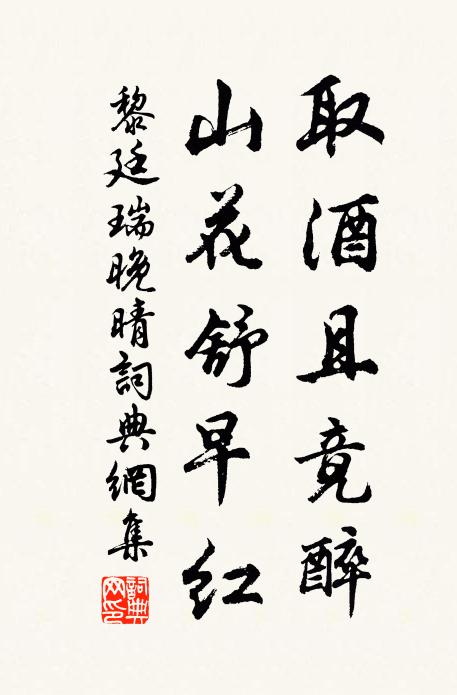 取酒且竟醉
山花舒早红
黎廷瑞晚晴詞典網集
詞典網印